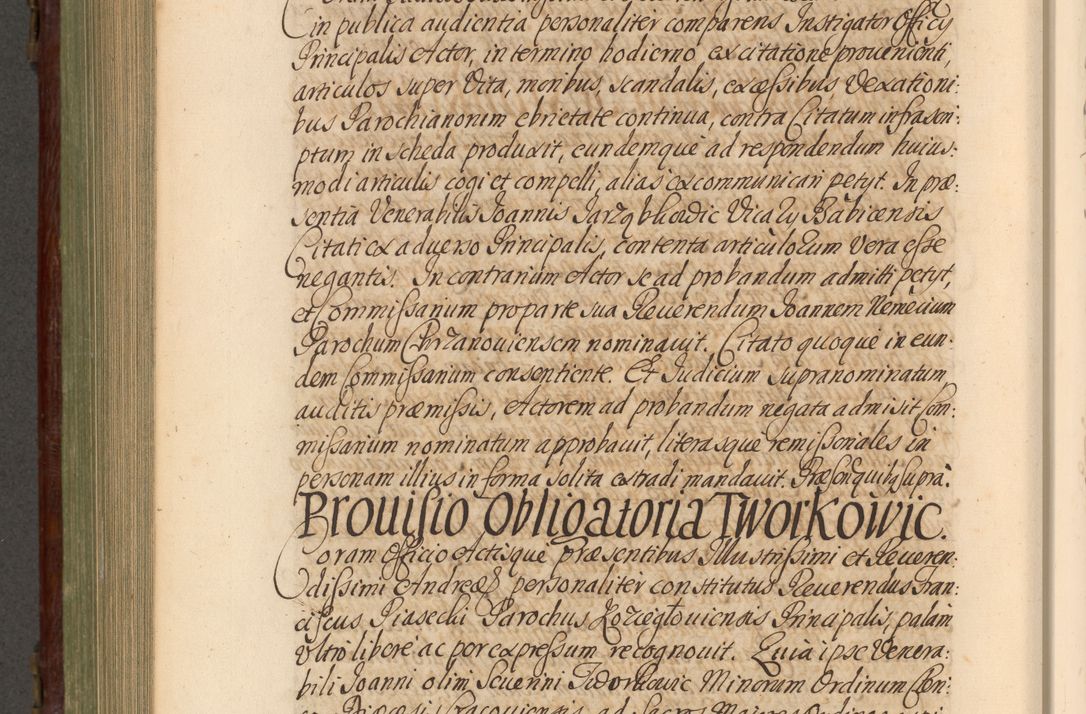 in publica audientia personaliter comparens Instigator Officij
Principalis Actor, in termino hodierno ex citatione provenienti,
articulos super Vita, moribus, scandalis, excessibus Vexationi:
bus Parochianorum ebrietate continua, contra Citatum infrascri:
ptum in scheda produxit, eundemque ad respondendum huius:
modi articulis cogi et compelli, alias excommunicari petyt. In præ:
sentia Venerabilis Joannis Vicarij Babicensis
Citati ex adverso Principalis, contenta articulorum vera esse
negantis. In contrarium Actor se ad probandum admitti petyt,
et Commissarium pro parte sua Reverendum Joannem Nemecium
Parochum Chrzanoviensem nominavit. Citato quoque in eun:
dem Commissarium consentiente. Et Judicium supranominatum
auditis præmissis, Actorem ad probandum negata admisit Com:
missarium nominatum approbavit, literasque remissoriales in
personam illius in forma solita extradi mandavit. Præsen quibs supra.
Provisio Obligatoria Tworkowic.
Coram Officio Actisque præsentibus Illustrissimi et Reveren:
dissimi Andreæ personaliter constitutus Reverendus Fran:
ciscus Piasecki Parochus Koziegłoviensis Principalis, palam
Vltro libere ac per expressum recognovit. Quia ipse Venera:
bili Joanni olim Severini Tworkowic Minorum Ordinum Cleri: